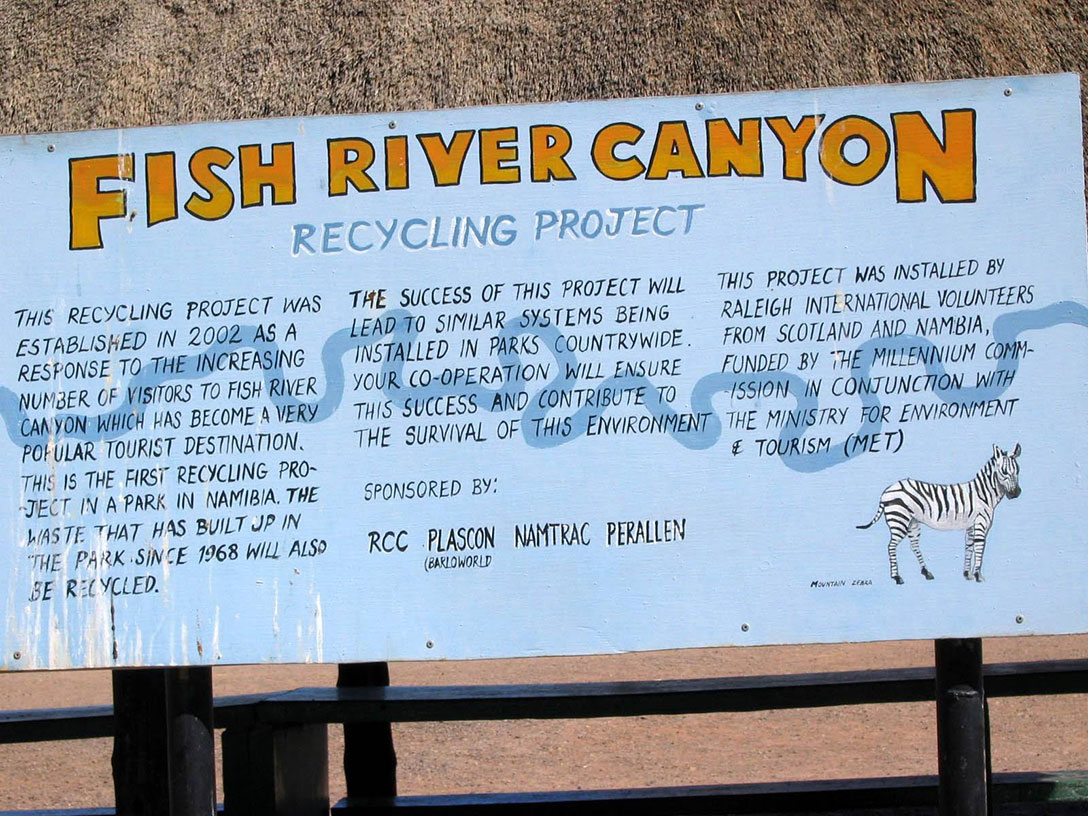 FISH RIVER CANYON
RECYCLING PROJECT
THIS RECYCLING PROJECT WAS
ESTABLISHED IN 2002 AS A
RESPONSE TO THE INCREASING
NUMBER OF VISITORS TO FISH RIVER
CANYON WHICH HAS BECOME A VERY
POPULAR TOURIST DESTINATION.
THIS IS THE FIRST RECYCLING PRO-
-JECT IN A PARK IN NAMIBIA. THE
WASTE THAT HAS BUILT UP IN
THE PARK SINCE 1968 WILL ALSO
BE RECYCLED.
THE SUCCESS OF THIS PROJECT WILL
LEAD TO SIMILAR SYSTEMS BEING
INSTALLED IN PARKS COUNTRYWIDE.
YOUR CO-OPERATION WILL ENSURE
THIS SUCCESS AND CONTRIBUTE TO
THE SURVIVAL OF THIS ENVIRONMENT
SPONSORED BY:
RCC PLASCON NAMTRAC PERALLEN
(BARLOWORLD
THIS PROJECT WAS INSTALLED BY
RALEIGH INTERNATIONAL VOLUNTEERS
FROM SCOTLAND AND NAMBIA,
FUNDED BY THE MILLENNIUM COMM-
-ISSION IN CONJUNCTION WITH
THE MINISTRY FOR ENVIRONMENT
& TOURISM (MET)
MOUNTAIN ZEBRA